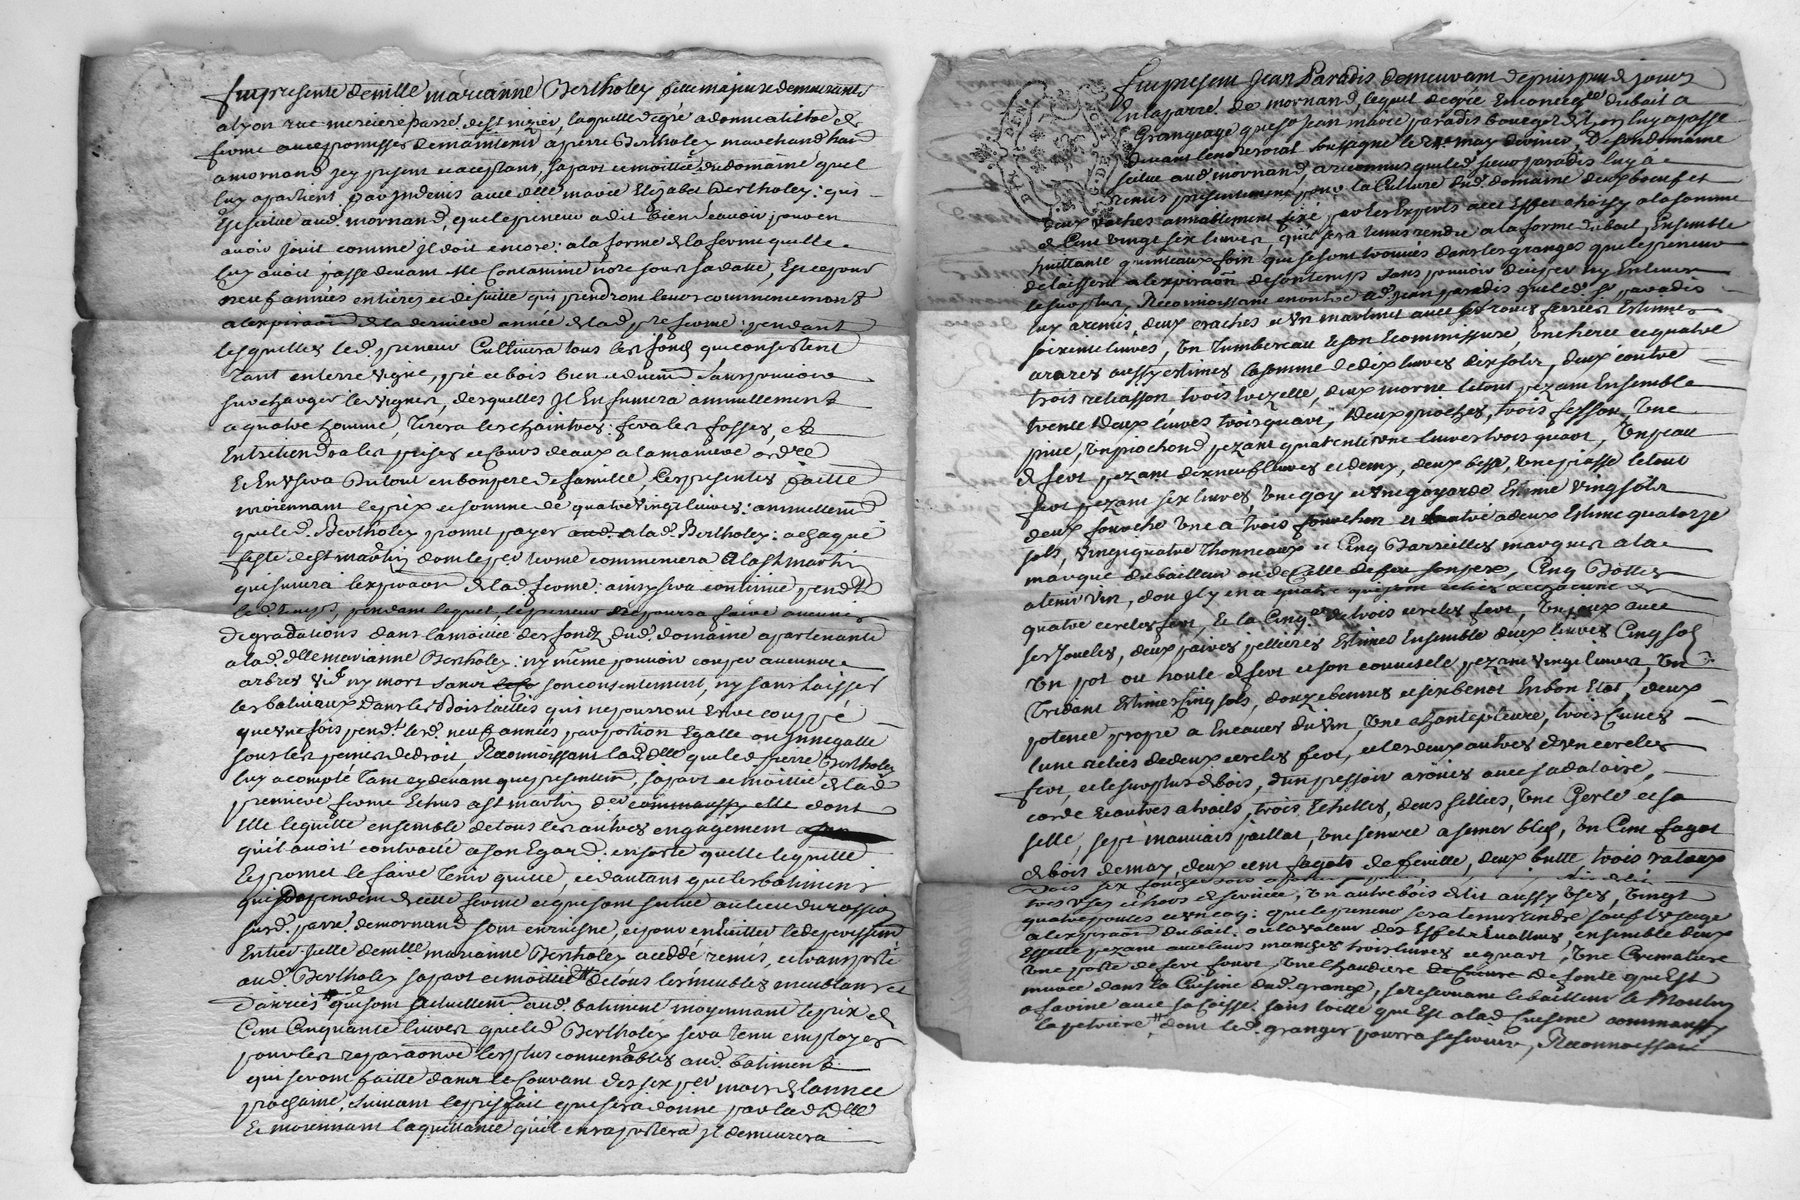 fut presente demlle marianne Bertholey fille majeure demeurante
a lyon rue merciere parre. de st nizier, laquelle de gré a donné a titre de
ferme avec promesse de maintenir a pierre Bertholey marchand
a mornand jcy present et acceptant, sa part et moitié du domaine quel
luy apartient par jndevis avec dlle marie Elizabet Bertholey: qui
Est situé aud. mornand, que le preneur a dit bien sçavoir pour en
avoir jouit comme jl doit encore: a la forme de la ferme quelle
luy avoit passé devant Me Contamine nore sous sa datte, Et ce pour
neuf années entières et de suitte qui prendront leurs commencement
a lexpiraon de la derniere année de la d. pnte ferme: pendant
lesquelles led. preneur Cultivera tous les fonds qui consistent
tant en terre vigne, pré et bois bien et duem. sans pouvoir
surcharger les vignes, desquelles jl En fumera annuellement
a quatre homme, tirera les chaintres: fera les fosses, et
Entretiendra les prises et Cours deaux a la maniere ordre
Et En usera du tout en bon pere de famille, Ces presentes faitte
moiennant le prix et somme de quatre vingt livres: annuellemt
que led. Bertholey promet payer a lad. Bertholey: a chaque
feste de st martin dont le per terme commencera A la st martin
qui suivra lexpiraon de lad. ferme: ainsy sera continué pendt
led. temps, pendant lequel le preneur ne poura faire aucune
degradations dans la moitiée des fonds dud. domaine apartenante
a lad. dlle marianne Bertholey: ny même pouvoir couper aucuns
arbres vif ny mort sans son consentement, ny sans laisser
les baliveaux dans les Bois taillis qui ne pourront Estre couppé
que une fois pendt. lesd. neuf années par portion Egalle ou jnnegalle
sous les peines de droit, Reconnoissant lad. dlle que led. pierre Bertholey
luy a compté tant cy devant que presentem. sa part et moitié de la d.
premiere ferme Echus a st martin der commanssy elle dont
Elle le quitte ensemble de tous les autres engagement
quil avoit contracté a son Egard. en sorte quelle le quitte
Et promet le faire tenir quitte, et dautant que les batiment
qui Dependent de cette ferme et qui sont situé au lieu du rossin
sud. parre. de mornand sont en ruisne, et pour en Eviter le deperissem
Entier jcelle demlle marianne Bertholey a ceddé remis, et transporté
aud. Bertholey sa part et moitié de tous les meubles meublans et
danrées qui sont actuellemt. aud. batiment moyennant le prix de
Cent Cinquante livres que led. Bertholey sera tenu employer
pour les reparaons les plus convenables aud. batiment
qui seront faitte dans le Courant des six per mois de lannée
prochaine, suivant le prisfait qui sera donné par lad. dlle
Et moiennant la quittance quil en raportera jl demeurera
fut present Jean Paradis demeurant depuis peu de jours
En la parre. de mornand, lequel de gré En consequce du bail a
Grangeage que sr jean marie paradis bourgeois de lyon luy a passé
devant le nore royal soussigné le may dernier, De son domaine
situé aud. mornand, a reconnus que led. sieur paradis luy a
remis presentement pour la Culture dud. domaine deux boeuf et
deux vaches amiablement fixé par les Experts avec Esset choisy a la somme
de Cent vingt six livres, quil sera tenus rendre a la forme du bail, Ensemble
huittante quintaux foin qui se sont trouvés dans les granges que le preneur
delaissera a lexpiraon de son temps sans pouvoir divertir ny Enlever
le surplus, Reconnoissant en outre led. jean paradis que led. sr paradis
luy a remis, deux vaches et un martinet avec ses roues ferrées Estimée
soixente livres, un tumbereau Et son Ecommissure, une herce et quatre
araires aussy estimés la somme de dix livres dix sols, deux coutre
trois reliasson trois trezelle, deux morne le tout pezant Ensemble
trente deux livres trois quart, Deux pioches, trois fesson, une
pine, un piochond pezant quarente une livres trois quart, un peau
de fert pezant dix neuf livres et demy, deux besse, une piasse le tout
fert pezant six livres une goy et une goyarde Estimé vingt sols
deux fourche une a trois fourchon et lautre a deux Estimé quatorze
sols, vingt quatre thonneaux et Cinq Barreilles marqués a la
marque du bailleur ou de Celle de feu son pere, Cinq Bottes
a tenir vin, dont jl y en a quatre qui sont reliés a chacune de
quatre cercles fert, Et la Cinqe. de trois cercles fert, un joux avec
ses jouctes, deux paires pellieres Estimées Ensemble deux livres Cinq sol
un pot ou houle de fert et son couvercle pezant vingt livres, un
tridant Estimé Cinq sols, douze bennes et six benot En bon Etat, deux
potence propre a Encaver du vin, une chantepleure, trois Cuves
lune reliée de deux cercles fert, et les deux autres de un cercles
fert, et le surplus de bois, dun pressoir a rouës avec sa dalaire,
corde Et autres atrails, trois Echelles, deux sellies, une Gerle et sa
selle, sept mauvais paillat, une senevre a semer bled, un Cent fagot
de bois de may, deux cent fagots de feuille, deux butte, trois rataux
trois uses et hors de service, un autre bois de lit aussy usés, vingt
quatre poules et un coq: que le preneur sera tenu rendre sauf lusage
a lexpiraon du bail ou la valeur des Effets Evallués, ensemble deux
Essette pezant avec leurs manches trois livres et quart, une Cremaliere
une porte de fert fourt, une chaudiere de fonte qui Est
murée dans la Cuisine dud. grange, se reservant le bailleur le Moulin
a farine avec sa caisse sans toille qui Est a lad. Cuisine commanssy
la petriere, dont led. granger pourra se servir, Reconnoissant